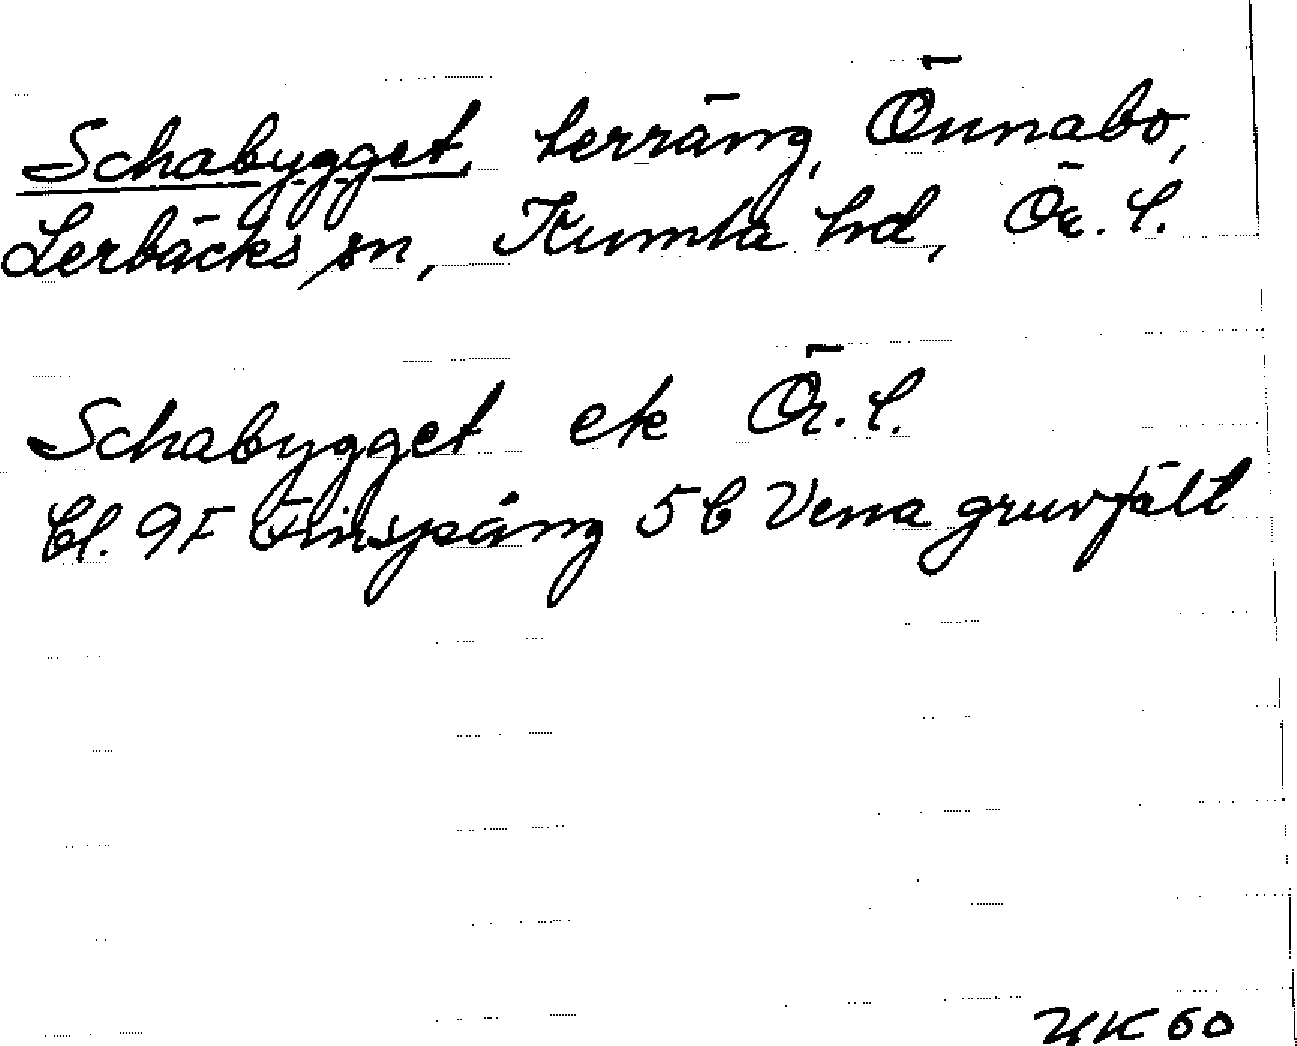 Schabygget, terräng, Önnabo,
Lerbäcks sn, Kumla hd, Ör. l.
Schabygget ek Ör. l.
Bl. 9F Finspång 5b Vena gruvfält
UK 60